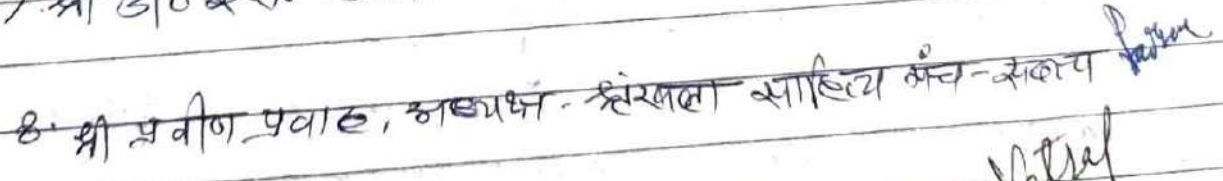 7. श्री डा०
8. श्री प्रवीण प्रवाह, अध्यक्ष - श्रंखला साहित्य मंच - सदस्य